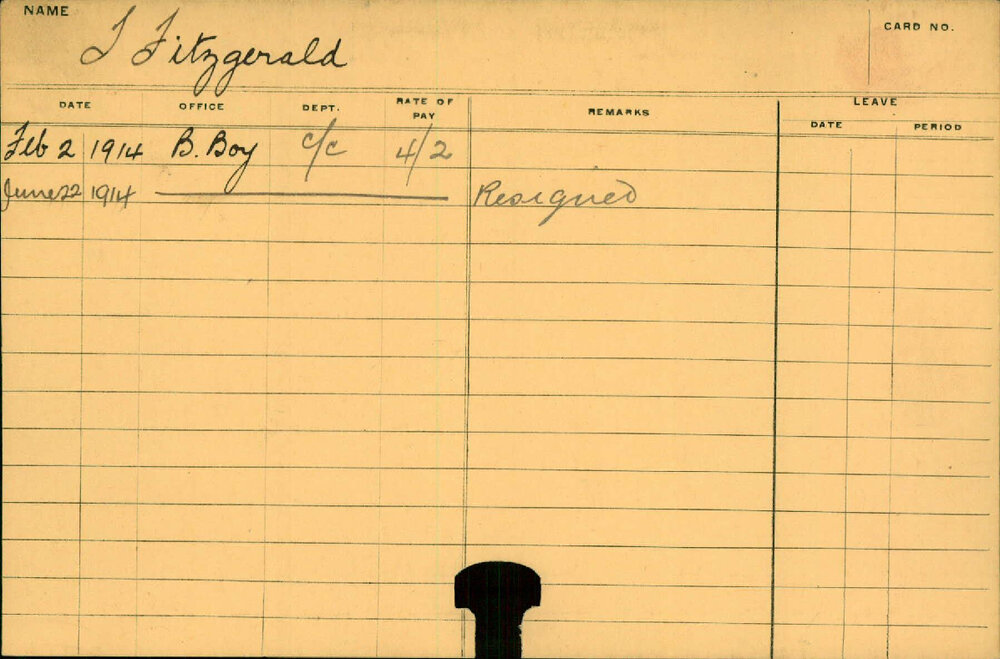 NAME
T Fitzgerald
CARD NO.
DATE OFFICE DEPT. RATE OF PAY REMARKS LEAVE
DATE PERIOD
Feb 2 1914 B. Boy c/c 4/2
June 22 1914 Resigned